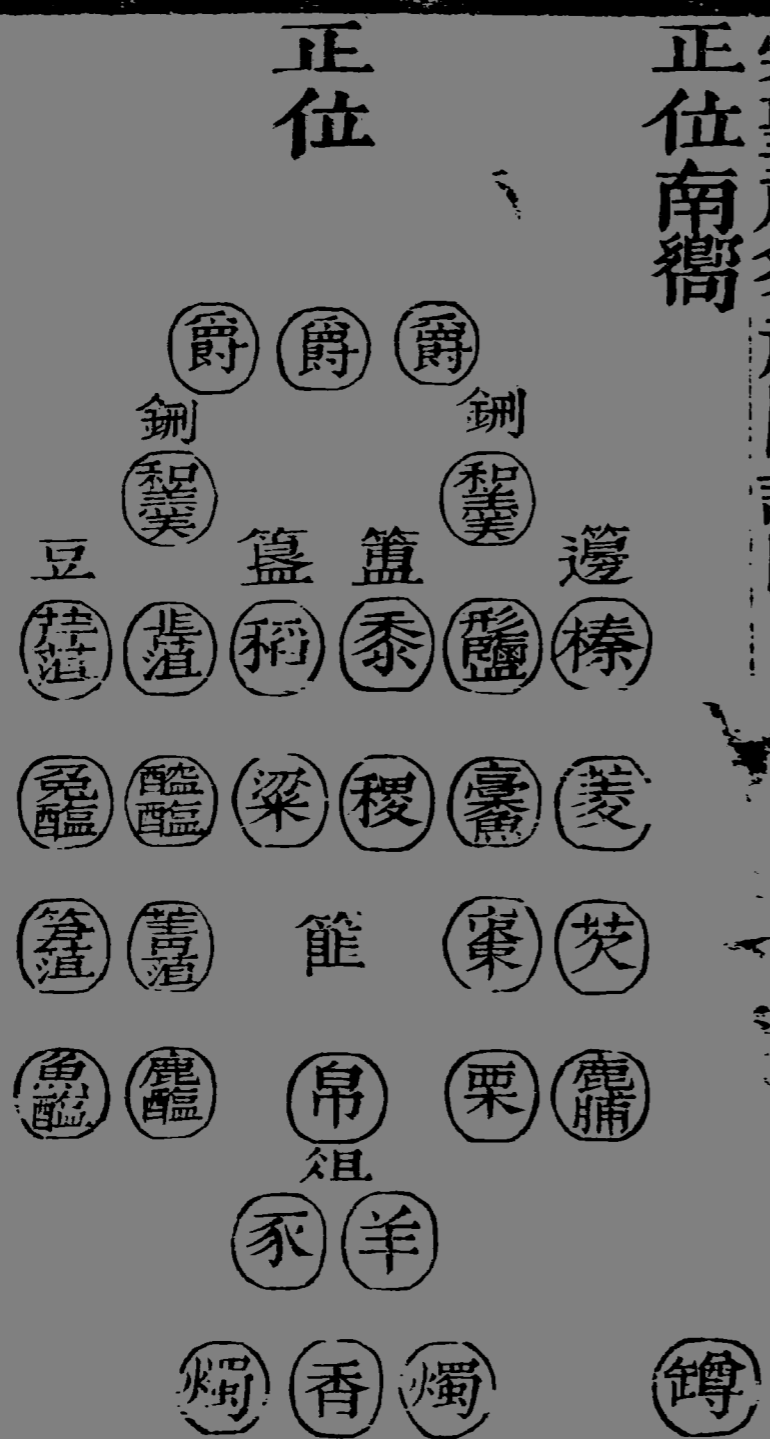 正位南嚮
正位
爵 爵 爵
鉶 鉶
和羹 和羹
籩 簠 簋 豆
榛 形鹽 黍 稻 韭菹 芹菹
菱 稾魚 稷 粱 醓醢 兔醢
芡 棗 篚 菁菹 笋菹
鹿脯 栗 帛 鹿醢 魚醢
俎
羊 豕
罇 燭 香 燭